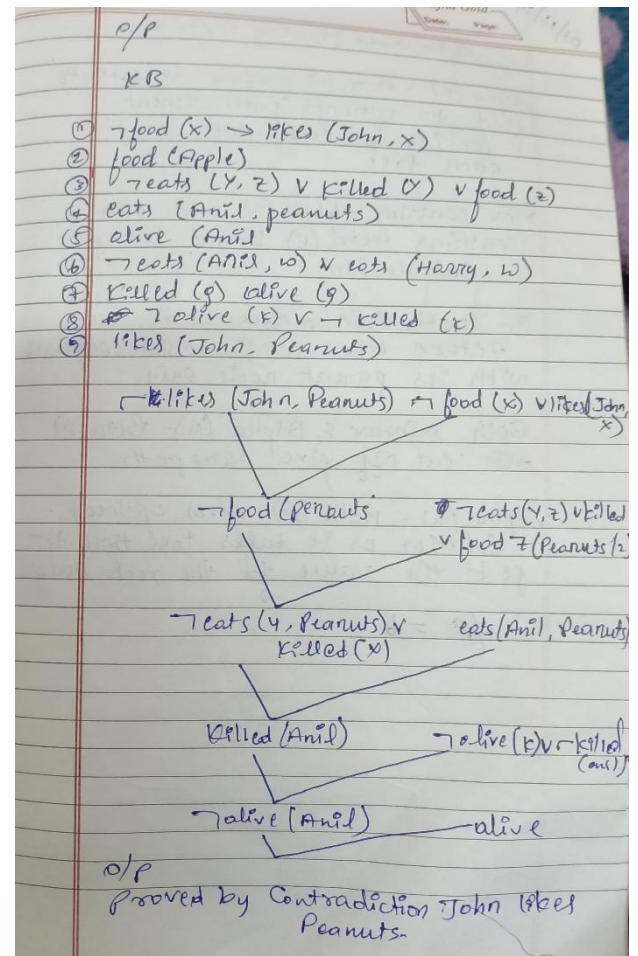 O/P
KB
① ¬food (x) → likes (John, x)
② food (Apple)
③ ¬eats (Y, Z) V Killed (Y) V food (z)
④ eats (Anil, peanuts)
⑤ alive (Anil
⑥ ¬eats (Anil, w) V eats (Harry, w)
⑦ Killed (g) alive (g)
⑧ ¬ alive (k) V ¬ killed (k)
⑨ likes (John, Peanuts)
¬likes (John, Peanuts) ¬ food (x) V likes (John, x)
¬food (Penauts ¬eats (Y, Z) V killed
V food Z (Peanuts/z)
¬eats (y, Peanuts) V eats (Anil, Peanuts)
Killed (x)
Killed (Anil) ¬alive (k) V ¬ killed
¬alive (Anil) alive
O/P
Proved by Contradiction John likes
Peanuts.
Date: Page: